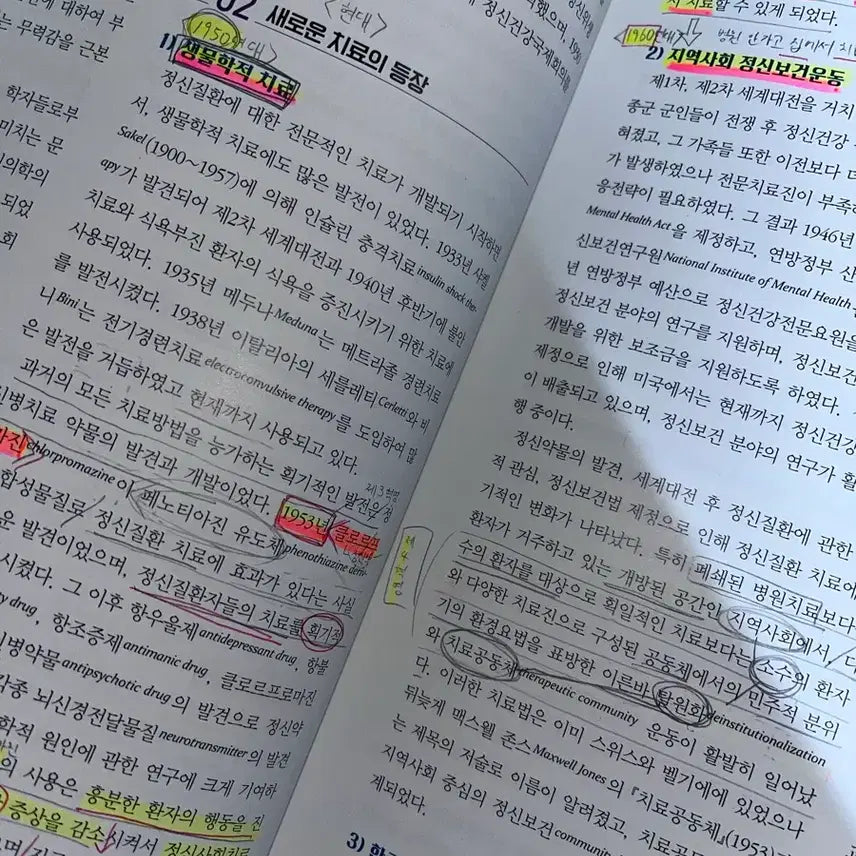 대하여 부
는 무력감을 근본
학자들로부
미치는 문
의학의
되었
회
02 새로운 치료의 등장
<현대>
1950년대
1) 생물학적 치료
정신질환에 대한 전문적인 치료가 개발되기 시작하면
서, 생물학적 치료에도 많은 발전이 있었다. 1933년 사켈
Sakel(1900~1957)에 의해 인슐린 충격치료insulin shock ther-
apy가 발견되어 제2차 세계대전과 1940년 후반기에 불안
치료와 식욕부진 환자의 식욕을 증진시키기 위한 치료에
사용되었다. 1935년 메두나Meduna는 메트라졸 경련치료
를 발전시켰다. 1938년 이탈리아의 세를레티Cerletti와 비
니Bini는 전기경련치료electroconvulsive therapy를 도입하여 많
은 발전을 거듭하였고 현재까지 사용되고 있다.
과거의 모든 치료방법을 능가하는 획기적인 발전은 정
제3혁명
신병치료 약물의 발견과 개발이었다. 1953년 클로르프
마진chlorpromazine이 페노티아진 유도체phenothiazine deriv-
합성물질로 정신질환 치료에 효과가 있다는 사실
운 발견이었으며, 정신질환자들의 치료를 획기적
시켰다. 그 이후 항우울제antidepressant drug, 항불
ty drug, 항조증제antimanic drug, 클로르프로마진
신병약물antipsychotic drug의 발견으로 정신약
각종 뇌신경전달물질neurotransmitter의 발견
학적 원인에 관한 연구에 크게 기여하
의 사용은 흥분한 환자의 행동을 진
증상을 감소시켜서 정신사회치료
정신건강국제회의를
치료할 수 있게 되었다.
<1960년대>
병원 안가고 집에서 치
2) 지역사회 정신보건운동
제1차, 제2차 세계대전을 거치
종군 군인들이 전쟁 후 정신건강
혀졌고, 그 가족들 또한 이전보다 더
가 발생하였으나 전문치료진이 부족
응전략이 필요하였다. 그 결과 1946년
Mental Health Act을 제정하고, 연방정부 산
신보건연구원National Institute of Mental Health
년 연방정부 예산으로 정신건강전문요원을
정신보건 분야의 연구를 지원하며, 정신보건
개발을 위한 보조금을 지원하도록 하였다.
제정으로 인해 미국에서는 현재까지 정신건강
이 배출되고 있으며, 정신보건 분야의 연구가 활
행 중이다.
정신약물의 발견, 세계대전 후 정신질환에 관한
적 관심, 정신보건법 제정으로 인해 정신질환 치료에
기적인 변화가 나타났다. 특히 폐쇄된 병원치료보다
제4혁명
환자가 거주하고 있는 개방된 공간인 지역사회에서, 다
수의 환자를 대상으로 획일적인 치료보다는 소수의 환자
와 다양한 치료진으로 구성된 공동체에서의 민주적 분위
기의 환경요법을 표방한 이른바 탈원화deinstitutionalization
와 치료공동체therapeutic community 운동이 활발히 일어났
다. 이러한 치료법은 이미 스위스와 벨기에에 있었으나
뒤늦게 맥스웰 존스Maxwell Jones의 『치료공동체』(1953)라
는 제목의 저술로 이름이 알려졌고, 치료공동
지역사회 중심의 정신보건community
계되었다.
3)